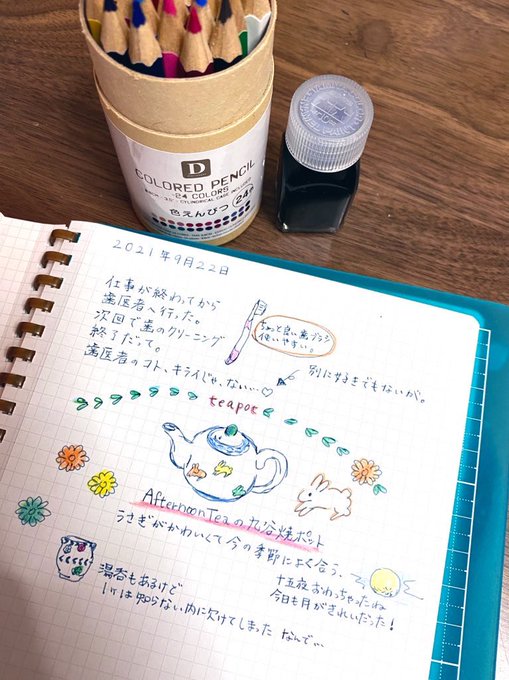 D
COLORED PENCIL
24 COLORS
CYLINDRICAL CASE INCLUDED
色えんぴつ 24
2021年9月22日
仕事が終わってから
歯医者へ行った。
次回で歯のクリーニング
終了だって。
歯医者のコト、キライじゃない…♡
ちょっと良い歯ブラシ
使いやすい。
別に好きでもないが。
teapot
AfternoonTeaの九谷焼ポット
うさぎがかわいくて今の季節によく合う、
湯呑もあるけど
1ケは知らない内に欠けてしまった なんで…
十五夜おわっちゃったね
今日も月がきれいだった!